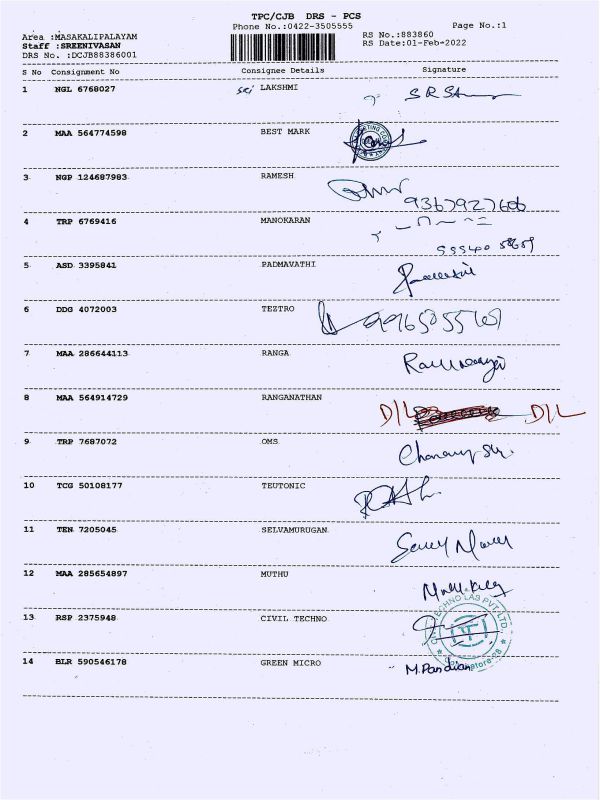 TPC/CJB DRS - PCS
Phone No.:0422-3505555
Page No.:1
Area :MASAKALIPALAYAM
RS No.:883860
Staff :SREENIVASAN
RS Date:01-Feb-2022
DRS No. :DCJB88386001
S No Consignment No Consignee Details Signature
1 NGL 6768027 Sri LAKSHMI
2 MAA 564774598 BEST MARK
3 NGP 124687983 RAMESH
4 TRP 6769416 MANOKARAN
5 ASD 3395841 PADMAVATHI
6 DDG 4072003 TEZTRO
7 MAA 286644113 RANGA
8 MAA 564914729 RANGANATHAN D/L D/L
9 TRP 7687072 OMS
10 TCG 50108177 TEUTONIC
11 TEN 7205045 SELVAMURUGAN
12 MAA 285654897 MUTHU
13 RSP 2375948 CIVIL TECHNO
14 BLR 590546178 GREEN MICRO M.Pandian